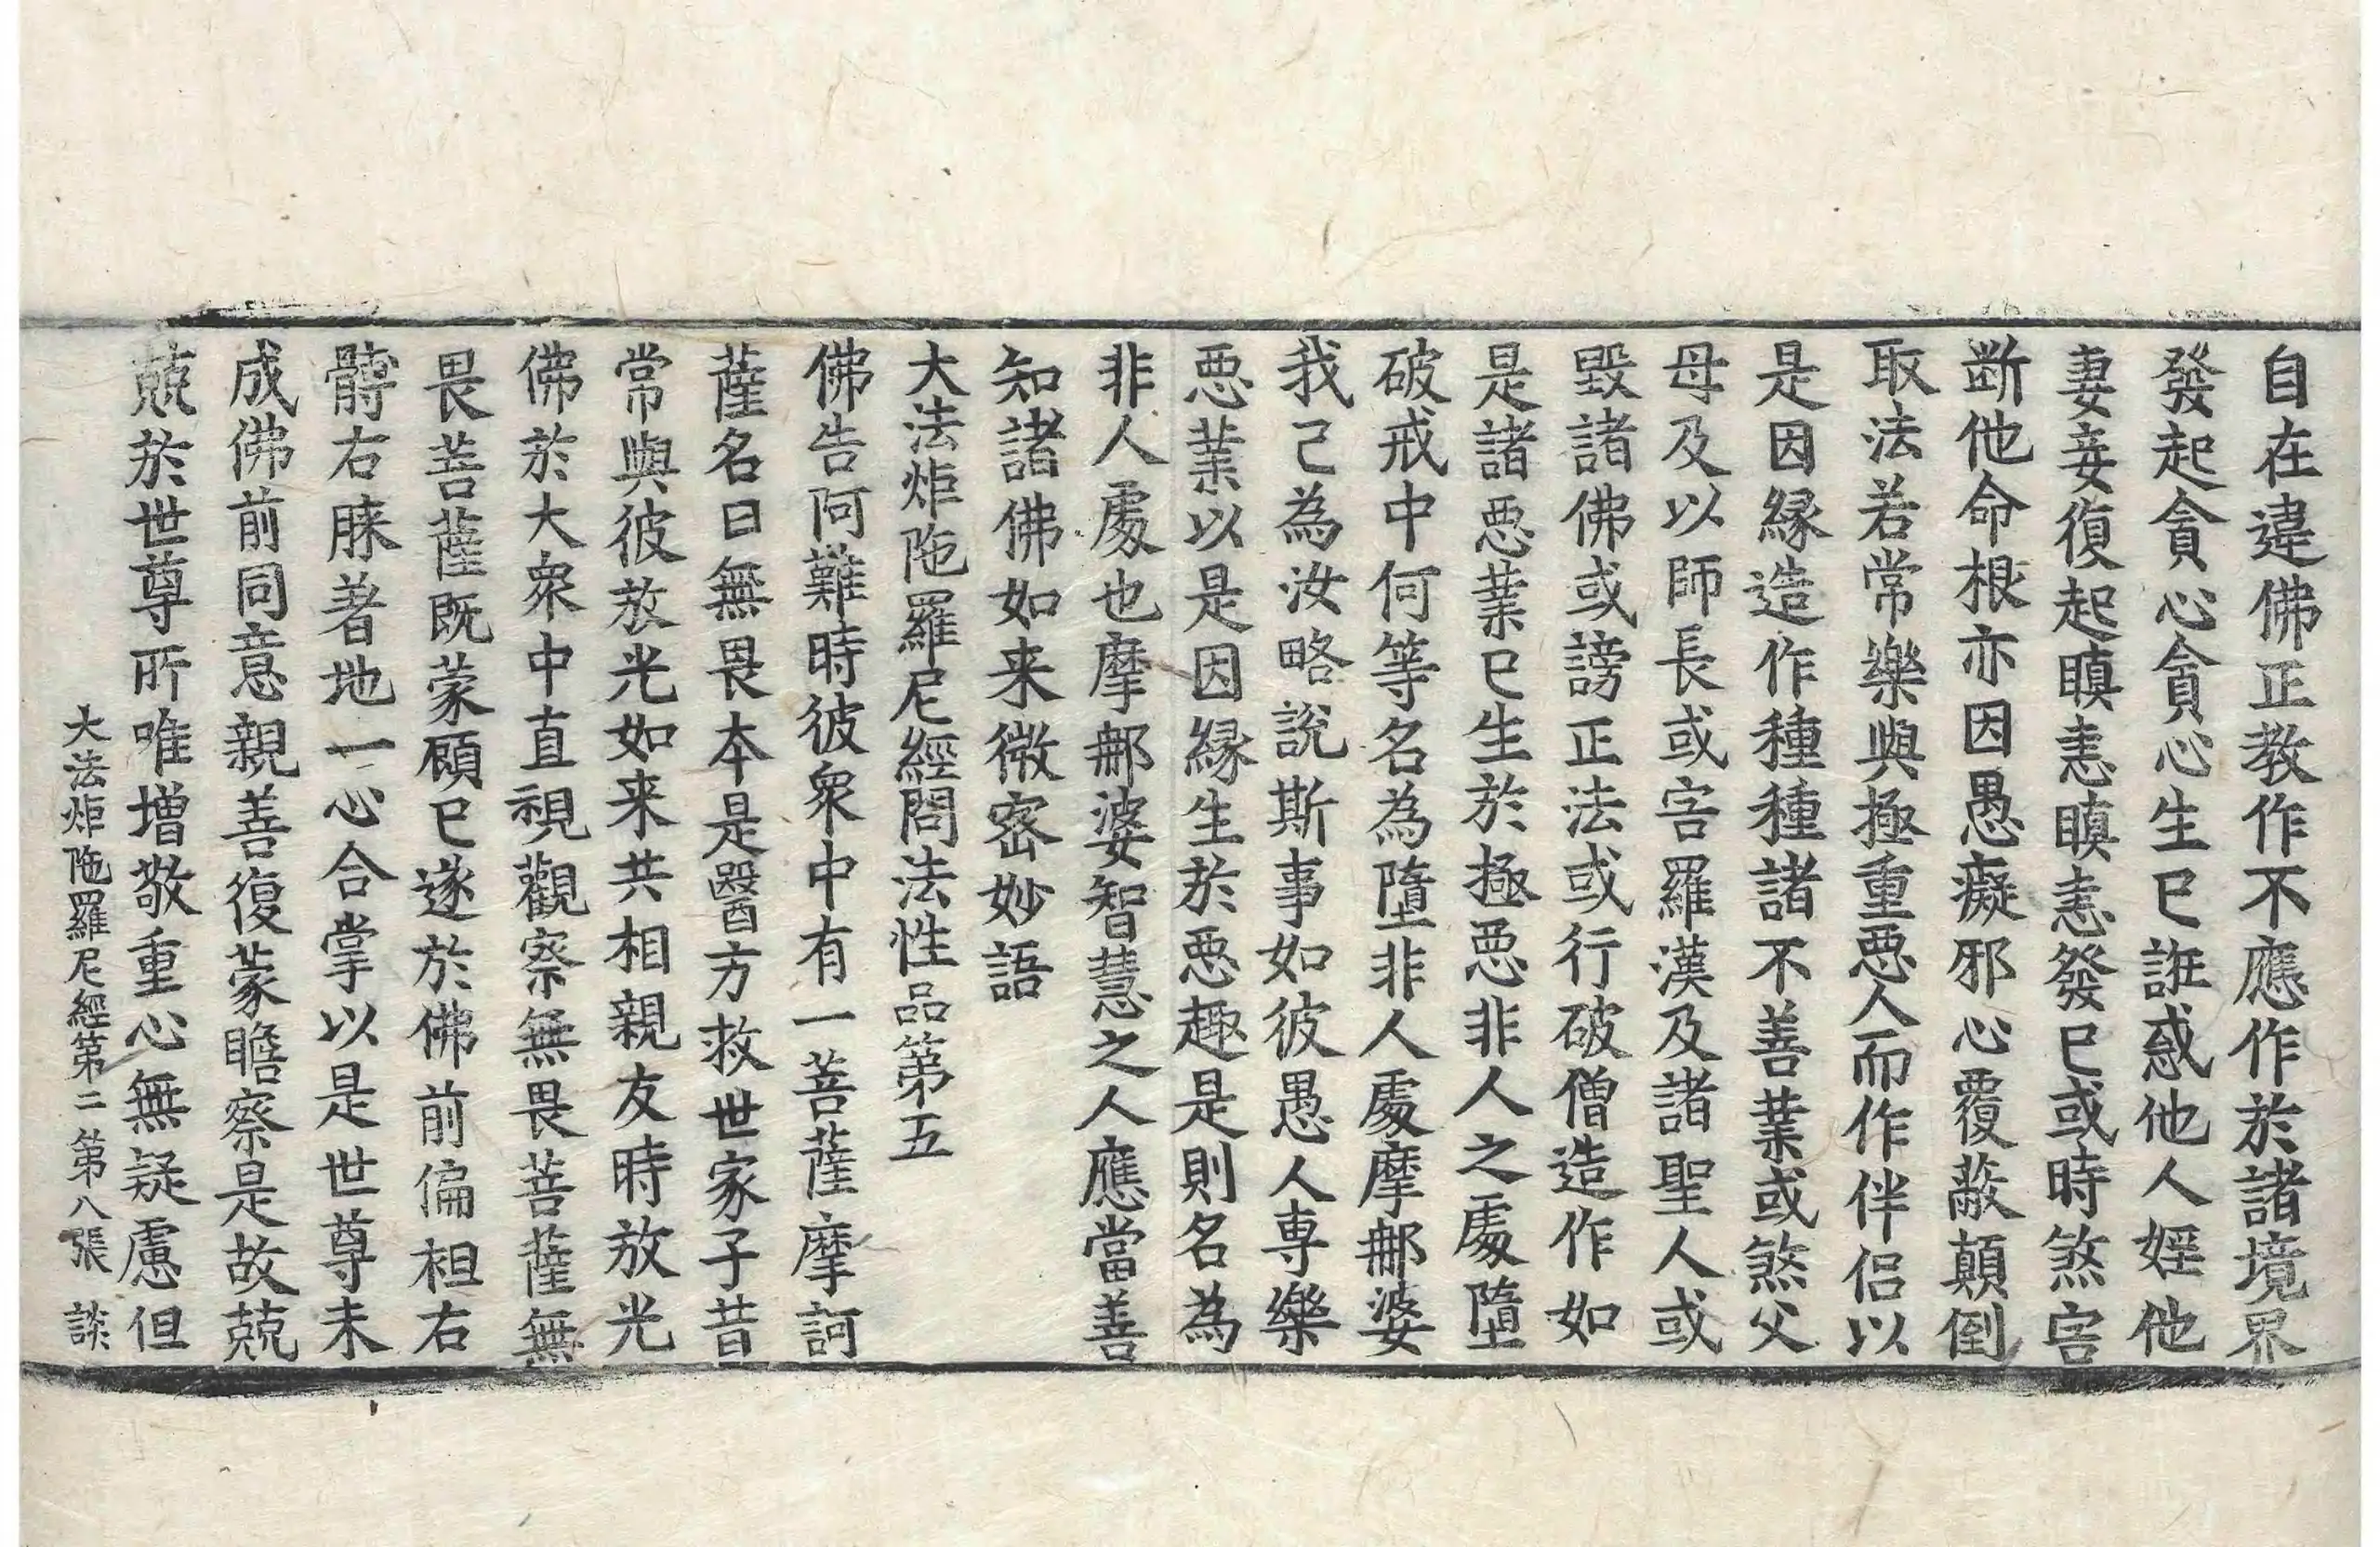 自在違佛正教作不應作於諸境界
發起貪心貪心生已誑惑他人婬他
妻妾復起瞋恚瞋恚發已或時煞害
断他命根亦因愚癡邪心覆蔽顛倒
取法若常樂與極重惡人而作伴侣以
是因緣造作種種諸不善業或煞父
母及以師長或害羅漢及諸聖人或
毀諸佛或謗正法或行破僧造作如
是諸惡業已生於極惡非人之處墮
破戒中何等名為墮非人處摩郍婆
我已為汝略說斯事如彼愚人専樂
惡業以是因緣生於惡趣是則名為
非人處也摩郍婆智慧之人應當善
知諸佛如来微密妙語
大法炬陁羅尼經問法性品第五
佛告阿難時彼衆中有一菩薩摩訶
薩名曰無畏本是醫方救世家子昔
常與彼放光如来共相親友時放光
佛於大衆中直視觀察無畏菩薩無
畏菩薩既蒙顧已遂於佛前偏袒右
髆右膝著地一心合掌以是世尊未
成佛前同意親善復蒙瞻察是故兢
兢於世尊所唯增敬重心無疑慮但
大法炬陁羅尼經第二 第八張 談